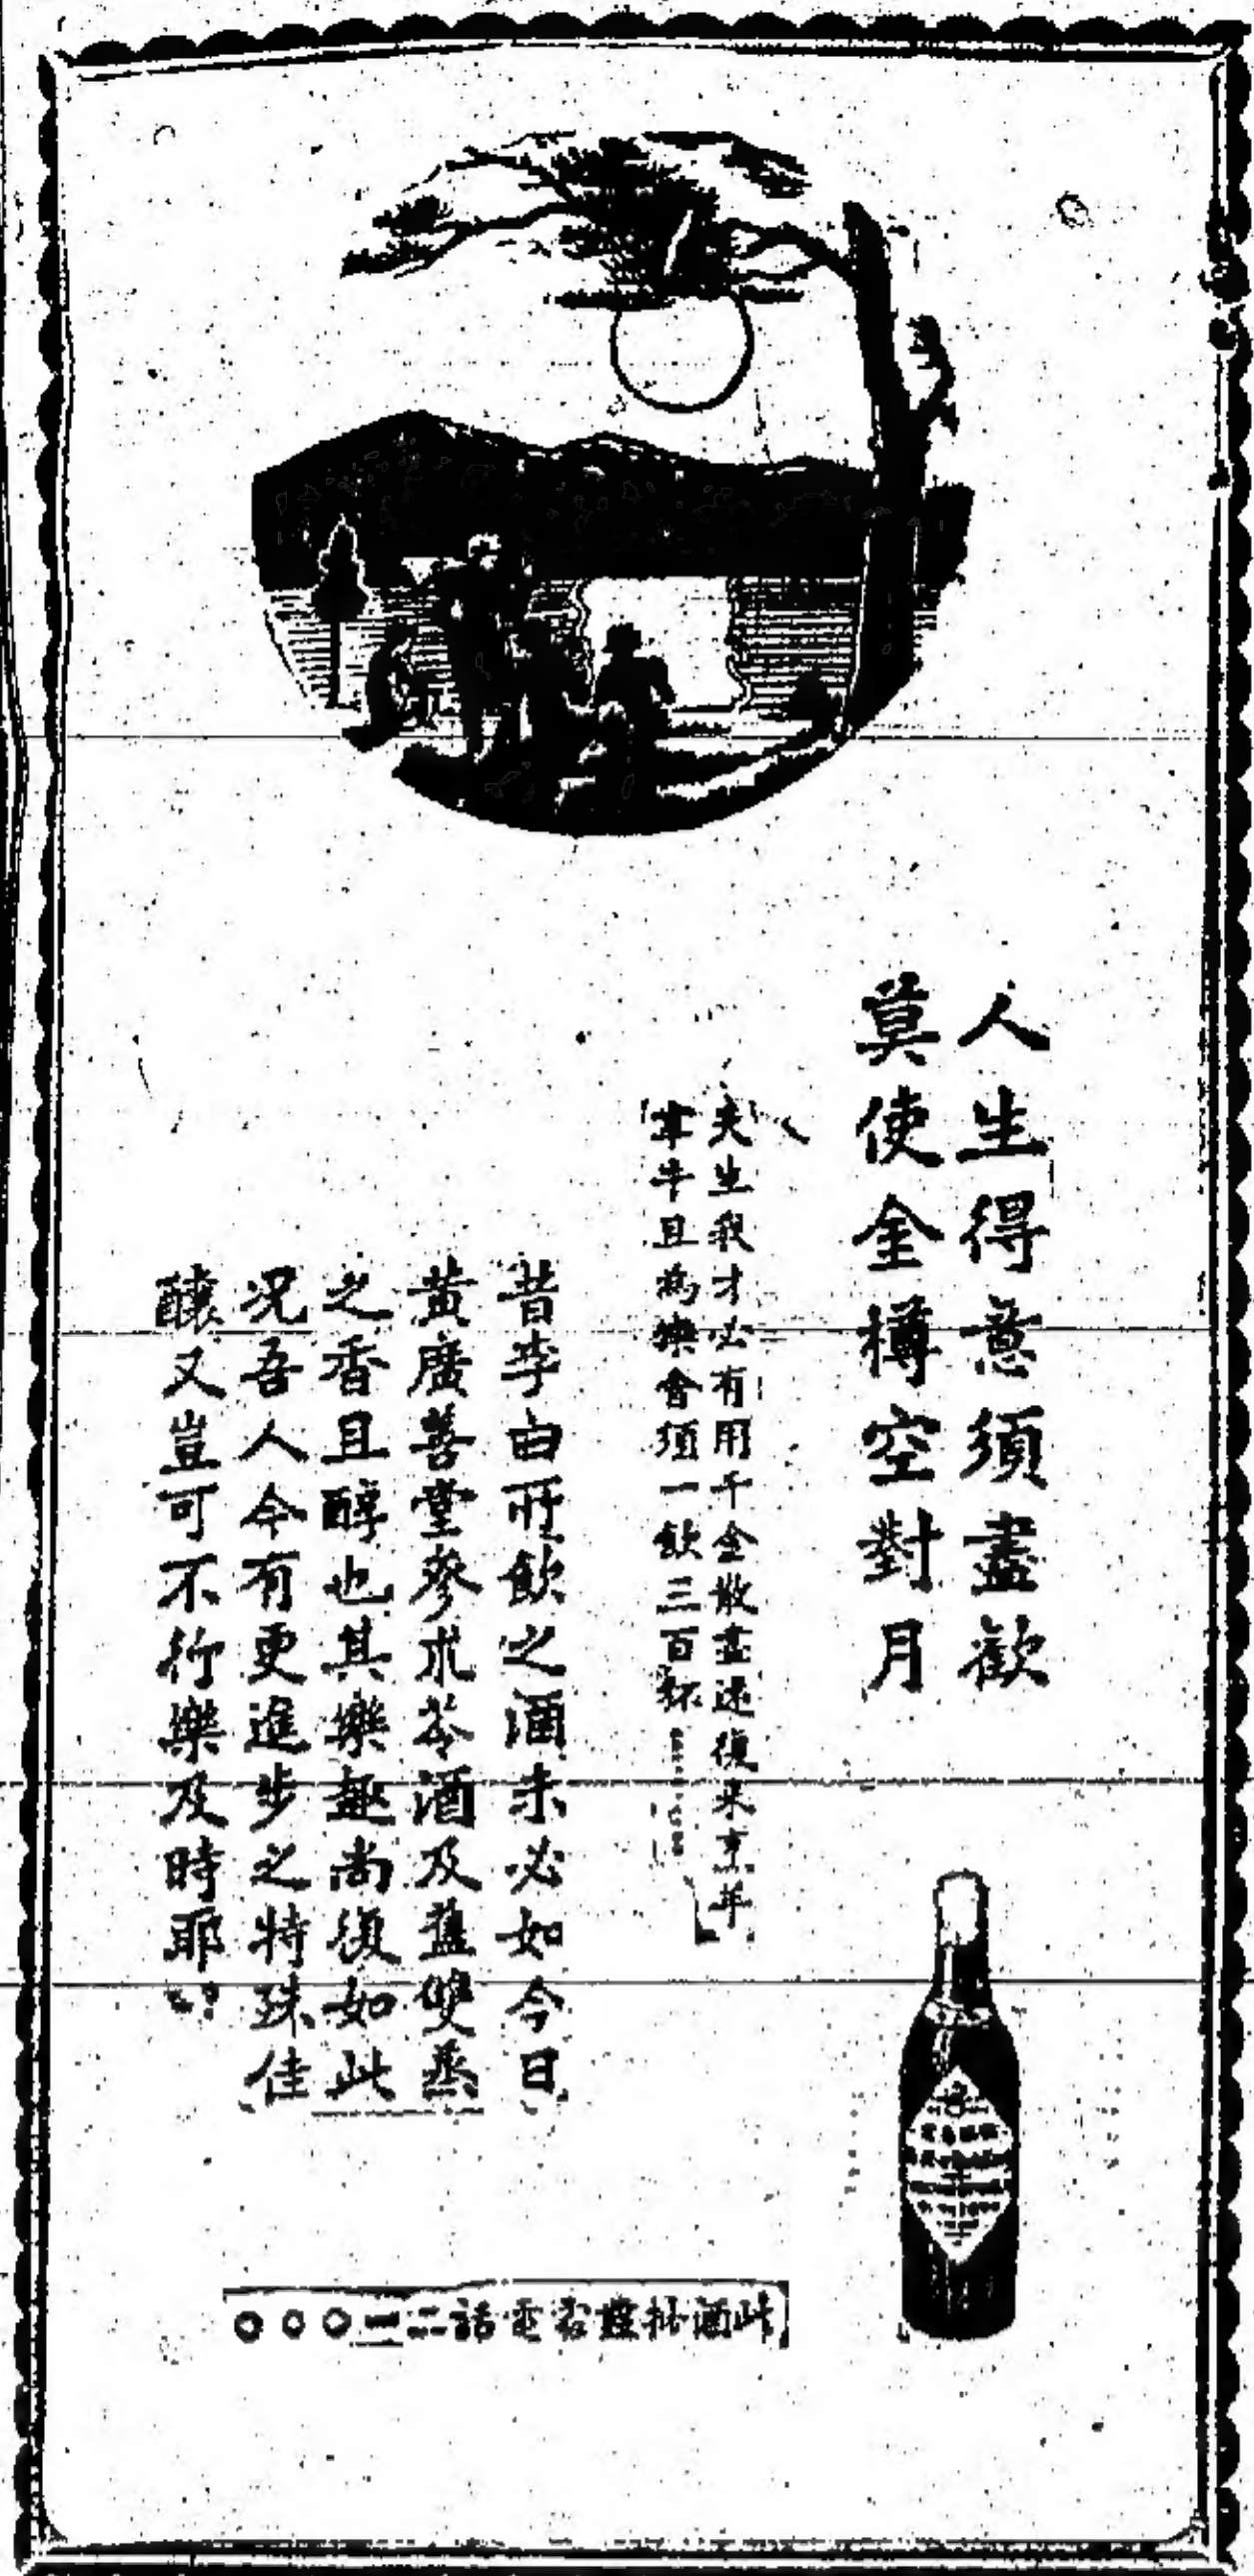 人生得意須盡歡
莫使金樽空對月
夫生我才必有用千金散盡還復來烹羊
宰牛且為樂會須一飲三百杯
昔李白所飲之酒未必如今日
黃廣善堂參朮苓酒及藍雙蒸
之香且醇也其樂趣尚復如此
況吾人今有更進步之特殊佳
釀又豈可不行樂及時耶
此酒批盤電話二一〇〇〇